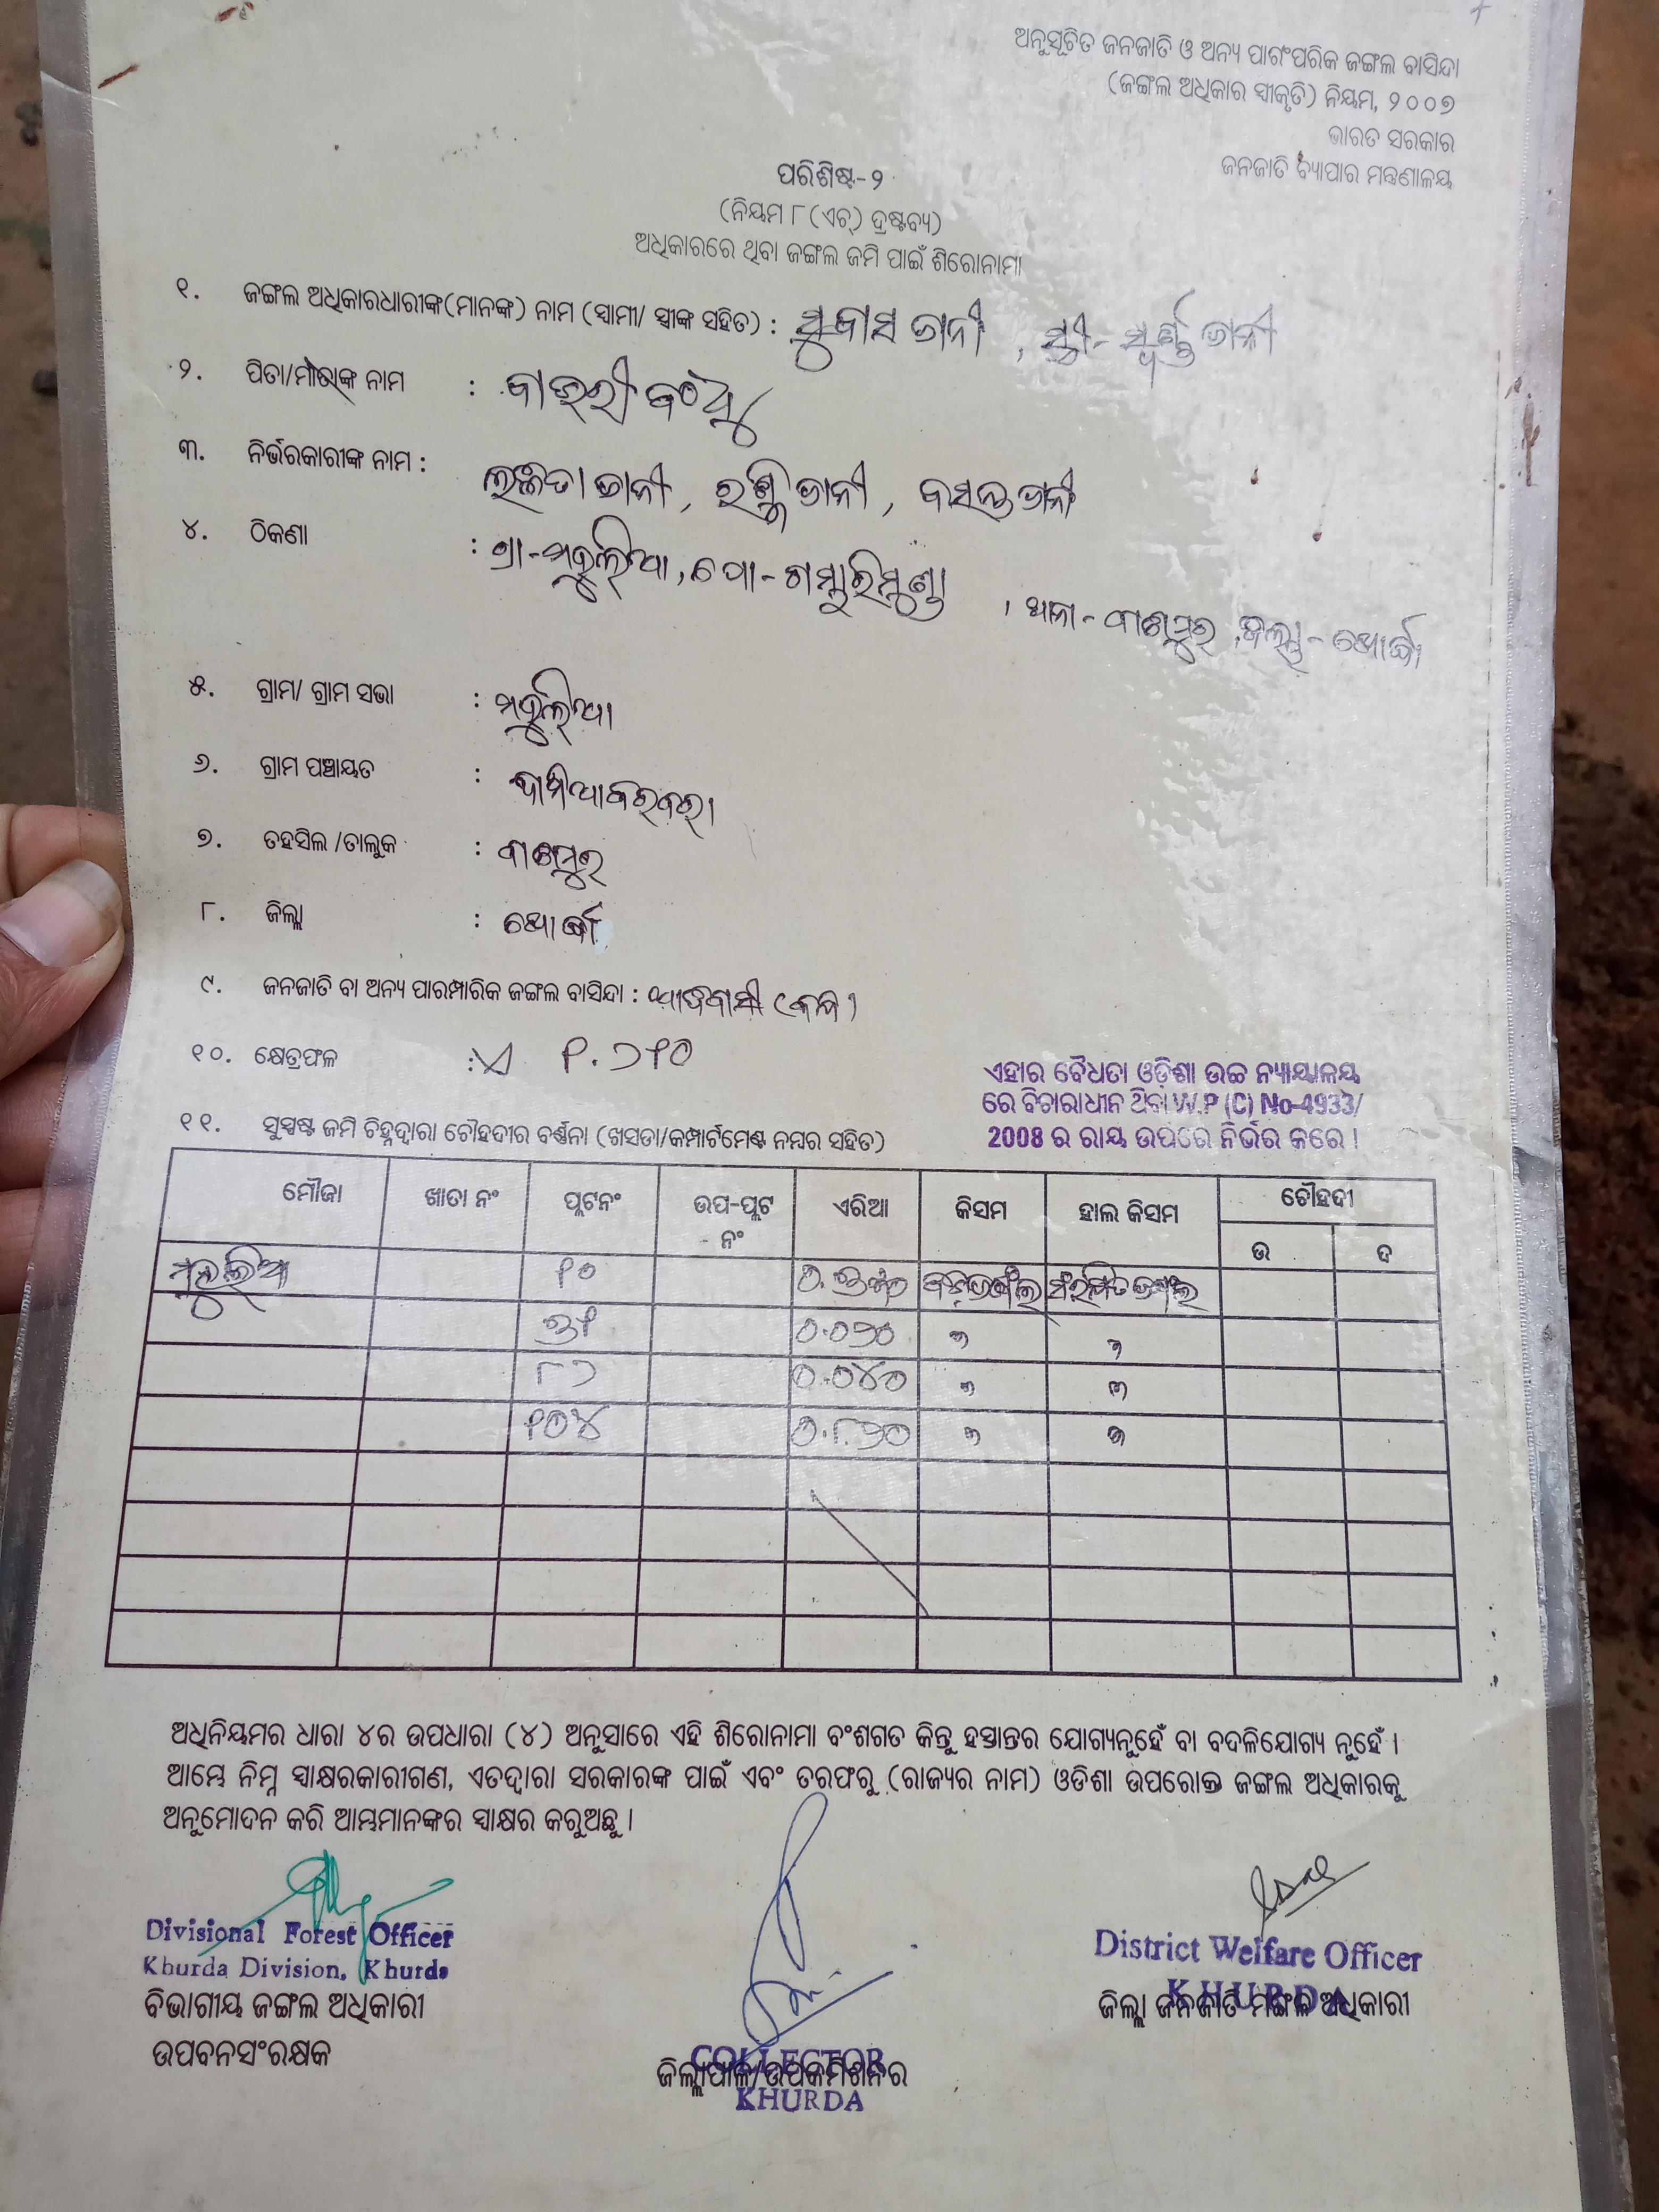 ଅନୁସୂଚିତ ଜନଜାତି ଓ ଅନ୍ୟ ପାରଂପରିକ ଜଙ୍ଗଲ ବାସିନ୍ଦା
(ଜଙ୍ଗଲ ଅଧିକାର ସ୍ୱୀକୃତି) ନିୟମ, ୨୦୦୭
ଭାରତ ସରକାର
ଜନଜାତି ବ୍ୟାପାର ମନ୍ତ୍ରଣାଳୟ
ପରିଶିଷ୍ଟ-୨
(ନିୟମ ୮(ଏଚ୍) ଦ୍ରଷ୍ଟବ୍ୟ)
ଅଧିକାରରେ ଥିବା ଜଙ୍ଗଲ ଜମି ପାଇଁ ଶିରୋନାମା
୧. ଜଙ୍ଗଲ ଅଧିକାରଧାରୀଙ୍କ(ମାନଙ୍କ) ନାମ (ସ୍ୱାମୀ/ ସ୍ତ୍ରୀଙ୍କ ସହିତ) : ସୁବାସ ଜାନୀ, ସ୍ତ୍ରୀ- ସ୍ୱର୍ଣ୍ଣ ଜାନୀ
୨. ପିତା/ମାତାଙ୍କ ନାମ :
୩. ନିର୍ଭରକାରୀଙ୍କ ନାମ : ଜାନୀ, ଜାନୀ, ବସନ୍ତ ଜାନୀ
୪. ଠିକଣା : ଗ୍ରା-ମହୁଲିଆ, ପୋ-ଗମ୍ଭାରିମୁଣ୍ଡା, ଥାନା-ବାଣପୁର, ଜିଲ୍ଲା-ଖୋର୍ଦ୍ଧା
୫. ଗ୍ରାମ/ ଗ୍ରାମ ସଭା : ମହୁଲିଆ
୬. ଗ୍ରାମ ପଞ୍ଚାୟତ :
୭. ତହସିଲ /ତାଲୁକ : ବାଣପୁର
୮. ଜିଲ୍ଲା : ଖୋର୍ଦ୍ଧା
୯. ଜନଜାତି ବା ଅନ୍ୟ ପାରମ୍ପାରିକ ଜଙ୍ଗଲ ବାସିନ୍ଦା : ଆଦିବାସୀ (କନ୍ଧ)
୧୦. କ୍ଷେତ୍ରଫଳ : ୧.୨୧୦
ଏହାର ବୈଧତା ଓଡ଼ିଶା ଉଚ୍ଚ ନ୍ୟାୟାଳୟ
ରେ ବିଚାରାଧୀନ ଥିବା W.P (C) No-4933/
2008 ର ରାୟ ଉପରେ ନିର୍ଭର କରେ ।
୧୧. ସୁସ୍ପଷ୍ଟ ଜମି ଚିହ୍ନଦ୍ୱାରା ଚୌହଦୀର ବର୍ଣ୍ଣନା (ଖସଡା/କମ୍ପାର୍ଟମେଣ୍ଟ ନମ୍ବର ସହିତ)
ମୌଜା ଖାତା ନଂ ପ୍ଲଟନଂ ଉପ-ପ୍ଲଟ ନଂ ଏରିଆ କିସମ ହାଲ କିସମ ଚୌହଦୀ
ଉ ଦ
ମହୁଲିଆ ୧୦
୦.୦୨୦
୮୨ ୦.୦୪୦
୧୦୪ ୦.୮୨୦
ଅଧିନିୟମର ଧାରା ୪ର ଉପଧାରା (୪) ଅନୁସାରେ ଏହି ଶିରୋନାମା ବଂଶଗତ କିନ୍ତୁ ହସ୍ତାନ୍ତର ଯୋଗ୍ୟନୁହେଁ ବା ବଦଳିଯୋଗ୍ୟ ନୁହେଁ ।
ଆମ୍ଭେ ନିମ୍ନ ସ୍ୱାକ୍ଷରକାରୀଗଣ, ଏତଦ୍ୱାରା ସରକାରଙ୍କ ପାଇଁ ଏବଂ ତରଫରୁ (ରାଜ୍ୟର ନାମ) ଓଡିଶା ଉପରୋକ୍ତ ଜଙ୍ଗଲ ଅଧିକାରକୁ
ଅନୁମୋଦନ କରି ଆମ୍ଭମାନଙ୍କର ସ୍ୱାକ୍ଷର କରୁଅଛୁ ।
Divisional Forest Officer
Khurda Division, Khurda
ବିଭାଗୀୟ ଜଙ୍ଗଲ ଅଧିକାରୀ
ଉପବନସଂରକ୍ଷକ
COLLECTOR
ଜିଲ୍ଲାପାଳ/ଉପକମିଶନର
KHURDA
District Welfare Officer
KHURDA
ଜିଲ୍ଲା ଜନଜାତି ମଙ୍ଗଳ ଅଧିକାରୀ